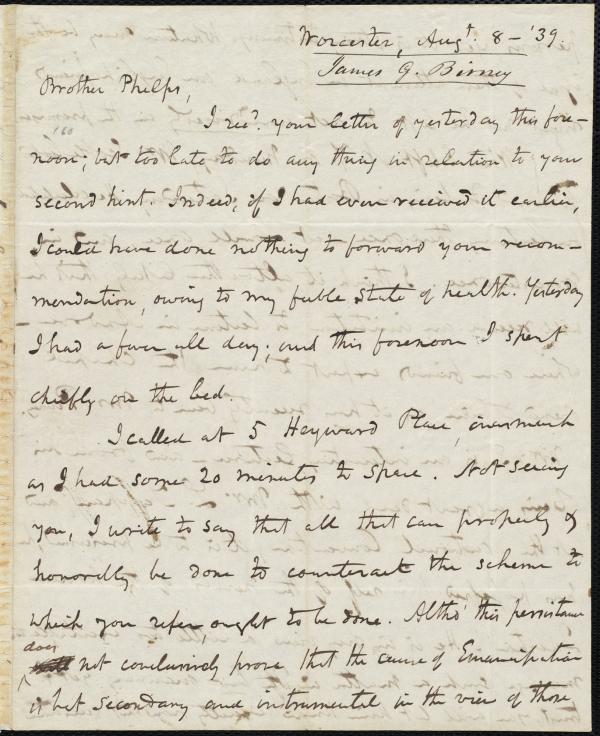 Worcester, Augt. 8 - '39.
James G. Birney
Brother Phelps,
I recd. your letter of yesterday this fore-
noon; but too late to do any thing in relation to your
second hint. Indeed, if I had even received it earlier,
I could have done nothing to forward your recom-
mendation, owing to my feeble state of health. Yesterday
I had a fever all day; and this forenoon I spent
chiefly on the bed.
I called at 5 Heyward Place, inasmuch
as I had some 20 minutes to spare. Not seeing
you, I write to say that all that can properly &
honorably be done to counteract the scheme to
which you refer, ought to be done. Altho' this persistance
does
not conclusively prove that the cause of Emancipation
is but secondary and instrumental in the view of those